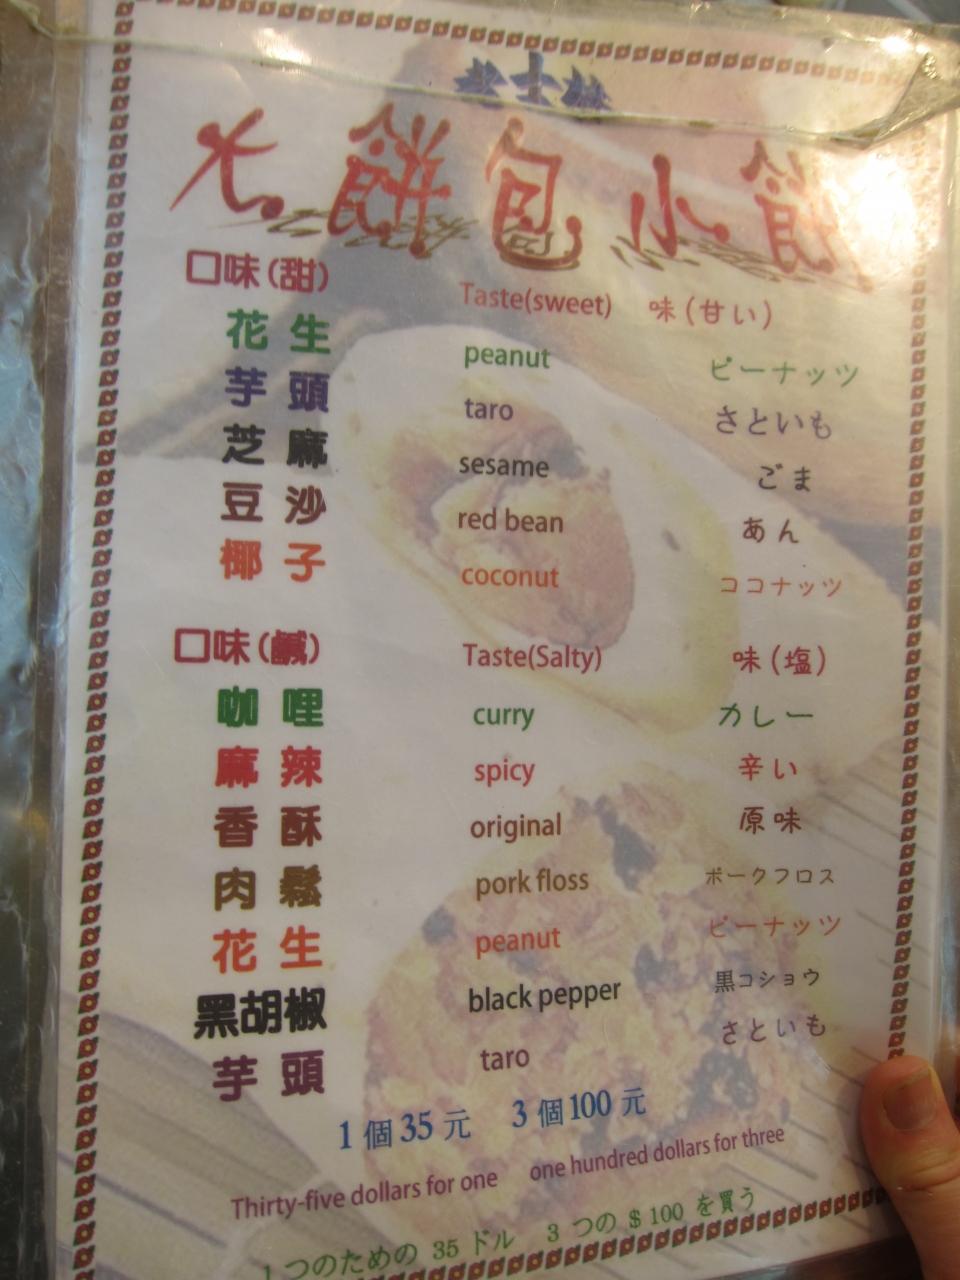 老士林
大餅包小餅
口味(甜) Taste(sweet) 味(甘い)
花生 peanut ピーナッツ
芋頭 taro さといも
芝麻 sesame ごま
豆沙 red bean あん
椰子 coconut ココナッツ
口味(鹹) Taste(Salty) 味(塩)
咖哩 curry カレー
麻辣 spicy 辛い
香酥 original 原味
肉鬆 pork floss ポークフロス
花生 peanut ピーナッツ
黑胡椒 black pepper 黒コショウ
芋頭 taro さといも
1個35元 3個100元
Thirty-five dollars for one one hundred dollars for three
1つのための 35 ドル 3 つの $100 を買う